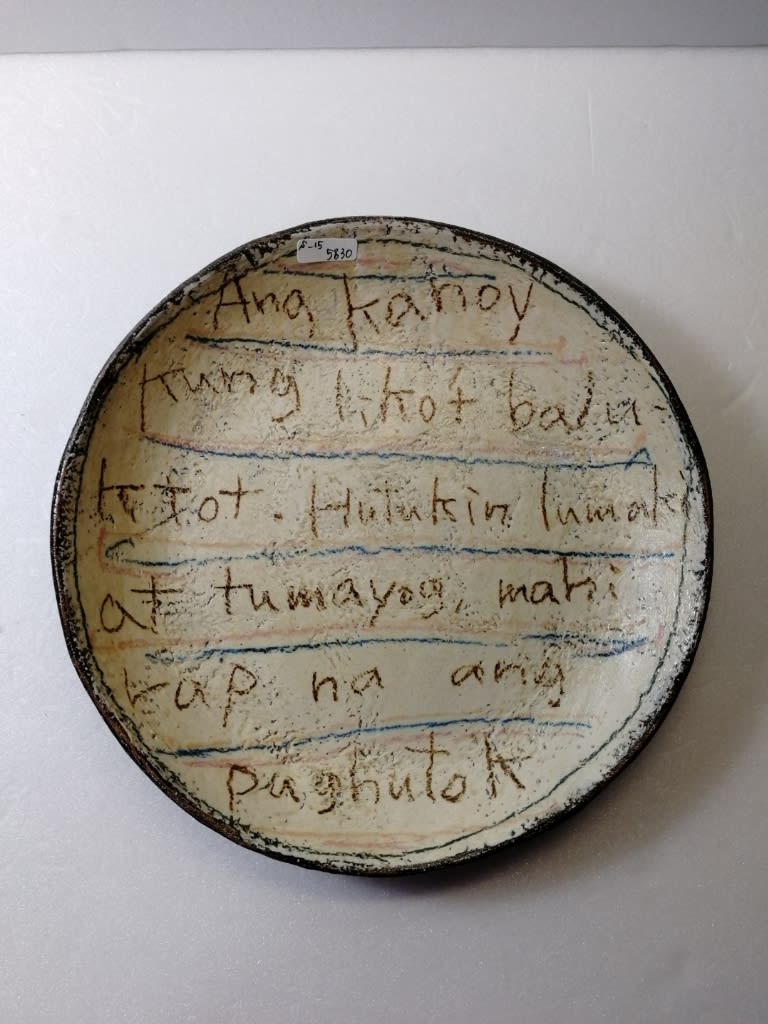 S-15
5830
Ang kahoy
kung likot balu-
ktot. Hutukin lumaki
at tumayog, mahi
rap na ang
paghutok